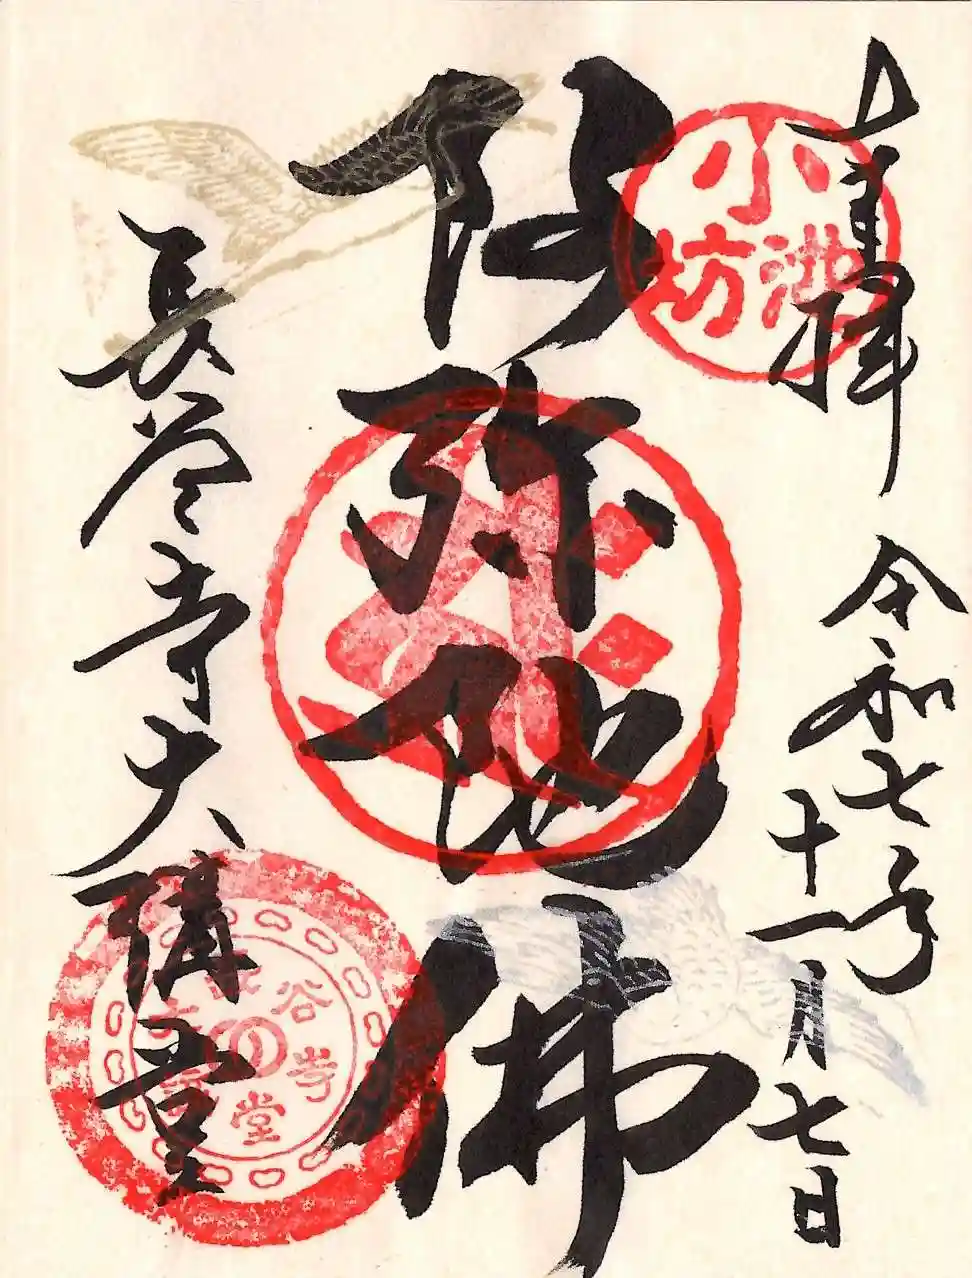 奉拝
令和七年十一月七日
小池坊
阿弥陀佛
長谷寺大講堂
谷寺
堂